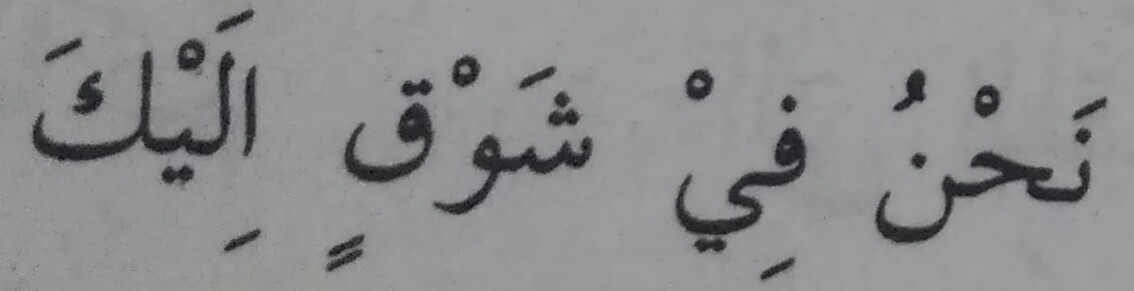 نَحْنُ فِيْ شَوْقٍ اِلَيْكَ